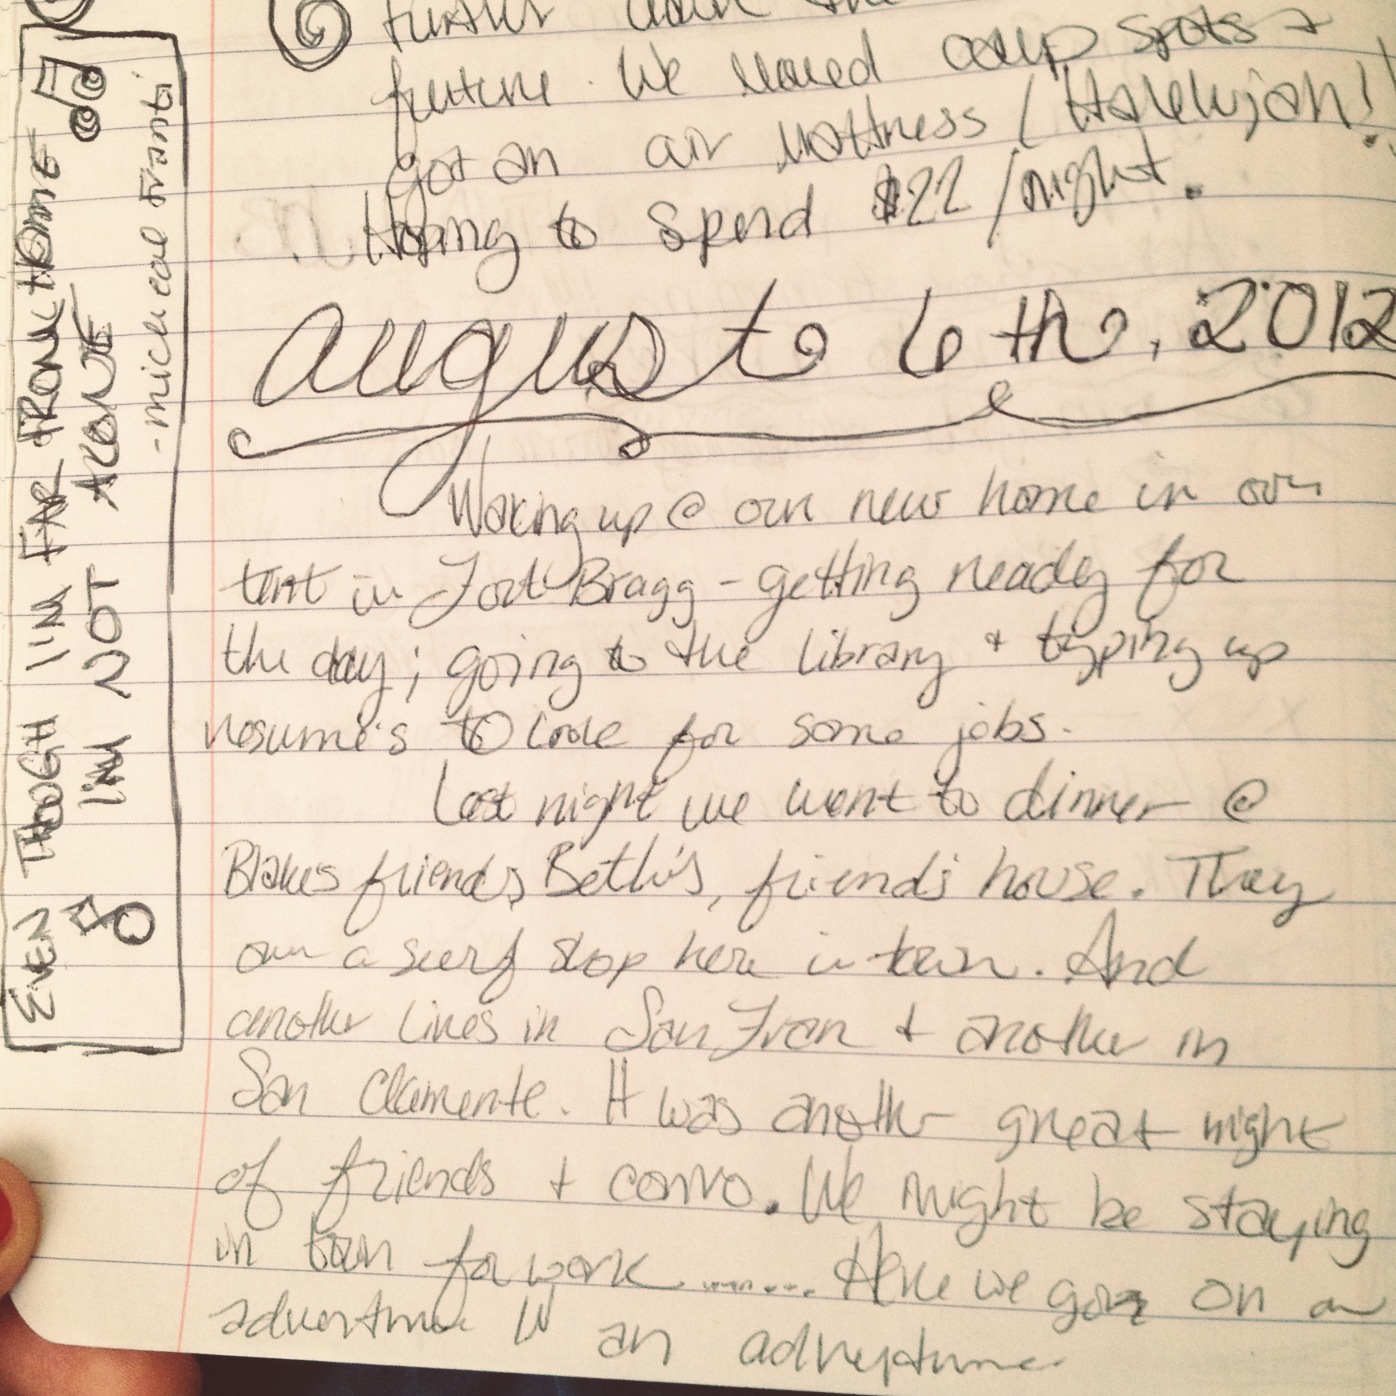 further down the
future. We moved camp spots +
got an air mattness / Halelujah!
Having to spend $22/night.
august 6th, 2012
Waking up @ our new home in our
tent in Fort Bragg - getting ready for
the day; going to the library + typing up
resume's to look for some jobs.
Last night we went to dinner @
Blakes friends, Beth's, friends house. They
own a surf shop here in town. And
another lives in San Fran + another in
San Clamente. It was another great night
of friends + convo. We might be staying
in town for work ....... Here we go on an
adventure in an adventure
EVEN THOUGH I'M FAR FROM HOME
I'M NOT ALONE
- micheal Franti